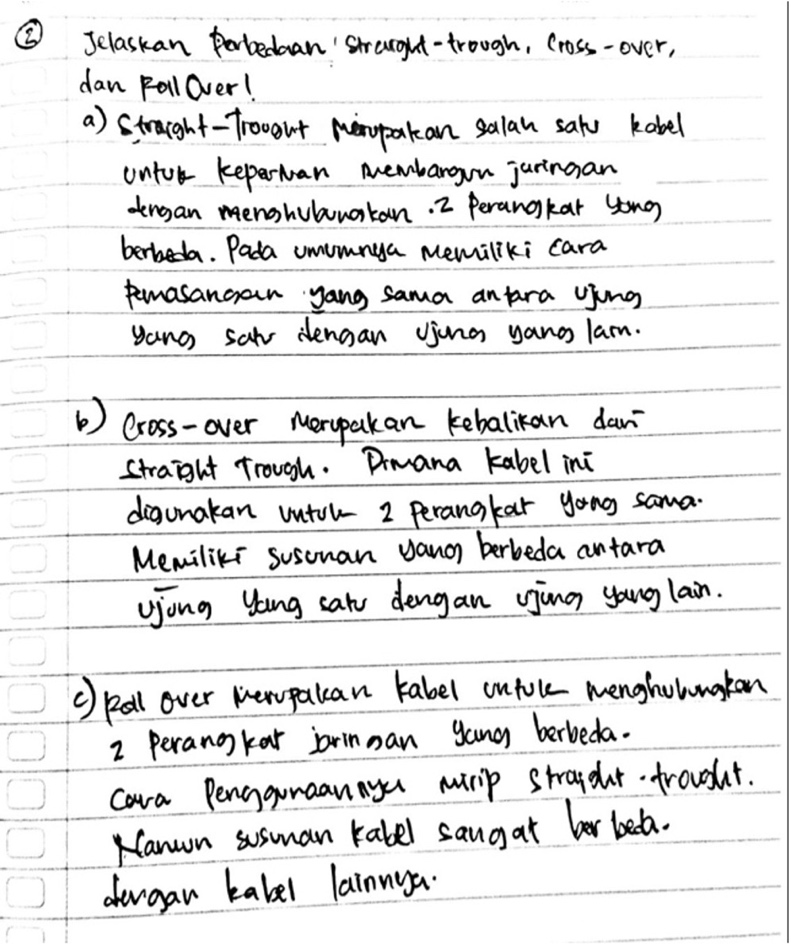 2 Jelaskan Perbedaan Straight-trough, Cross-over,
dan Roll Over!
a) Straight-Trought Merupakan salah satu kabel
untuk keperluan membangun jaringan
dengan menghubungkan 2 Perangkat yang
berbeda. Pada umumnya Memiliki cara
Pemasangan yang sama antara ujung
yang satu dengan ujung yang lain.
b) Cross-over Merupakan kebalikan dari
Straight Trough. Dimana kabel ini
digunakan untuk 2 Perangkat yang sama.
Memiliki susunan yang berbeda antara
ujung yang satu dengan ujung yang lain.
c) Roll over Merupakan kabel untuk menghubungkan
2 Perangkat jaringan yang berbeda.
Cara Penggunaannya mirip straight-trought.
Namun susunan kabel sangat berbeda.
dengan kabel lainnya.